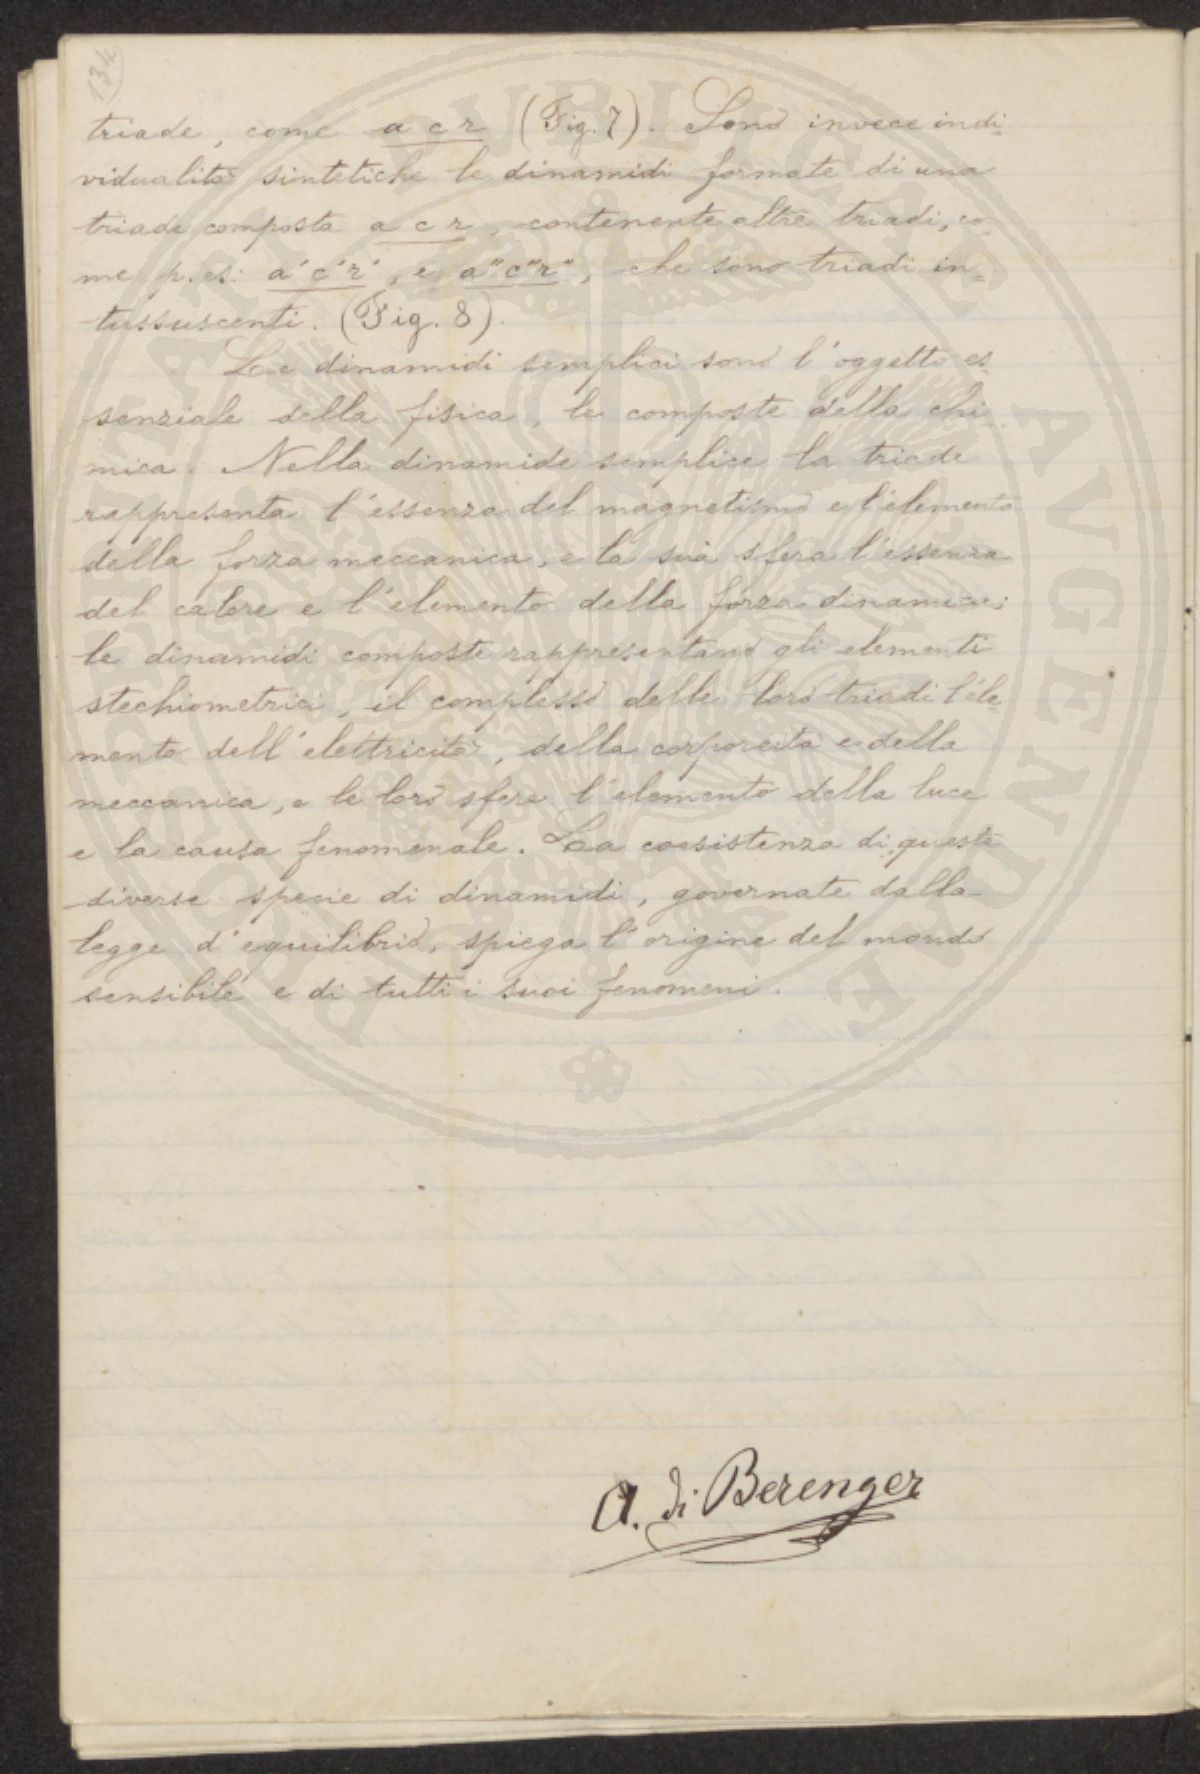 134
triade, come a c r (Fig. 7). Sono invece indi=
vidualità sintetiche le dinamidi formate di una
triade composta a c r, contenente altre triadi, co=
me p. es: a' c' r', e a" c" r", che sono triadi in=
tussuscenti. (Fig. 8).
Le dinamidi semplici sono l'oggetto es
senziale della fisica, le composte della chi
mica. Nella dinamide semplice la triade
rappresenta l'essenza del magnetismo e l'elemento
della forza meccanica, e la sua sfera l'essenza
del calore e l'elemento della forza dinamica;
le dinamidi composte rappresentano gli elementi
stechiometrici, il complesso delle loro triadi l'ele=
mento dell'elettricità, della corporeità e della
meccanica, e le loro sfere l'elemento della luce
e la causa fenomenale. La coesistenza di queste
diverse specie di dinamidi, governate dalla
legge d'equilibrio, spiega l'origine del mondo
sensibile e di tutti i suoi fenomeni.
A. di Berenger